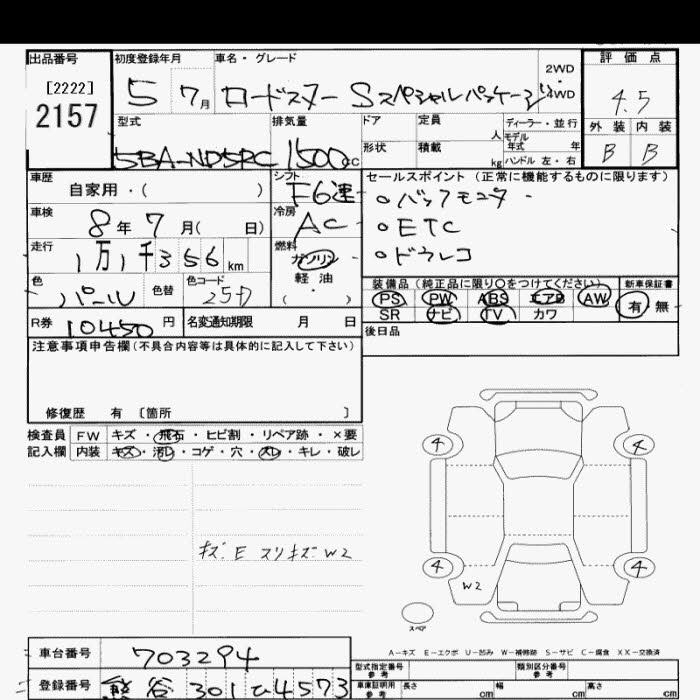 出品番号
[2222]
2157
初度登録年月
5 7月
車名・グレード
ロードスター Sスペシャルパッケージ
2WD
4WD
評価点
4.5
外装 内装
B B
型式
5BA-ND5RC
排気量
1500cc
ドア
形状
定員
人
積載
kg
ディーラー・並行
モデル
年式 年
ハンドル 左・右
車歴
自家用・( )
シフト
F6速
車検
8年7月( 日)
冷房
AC
走行
1万1千356km
燃料
ガソリン
軽油
・( )
色
パール
色替
色コード
25D
R券
10450円
名変通知期限 月 日
セールスポイント (正常に機能するものに限ります)
○バックモニター
○ETC
○ドラレコ
装備品(純正品に限り○をつけてください)
新車保証書
PS PW ABS エアB AW
SR ナビ TV カワ
有 無
後日品
注意事項申告欄(不具合内容等は具体的に記入して下さい)
修復歴 有 〔箇所 〕
検査員
記入欄
FW キズ・飛石・ヒビ割・リペア跡・×要
内装 キズ・汚レ・コゲ・穴・スレ・キレ・破レ
キズ E スリキズ W2
4 4
4 4
W2
スペア
A-キズ E-エクボ U-凹み W-補修跡 S-サビ C-腐食 XX-交換済
車台番号
703294
登録番号
熊谷 301 ひ 4573
型式指定番号
参考
類別区分番号
参考
車庫証明用
参考
長さ cm
幅 cm
高さ cm